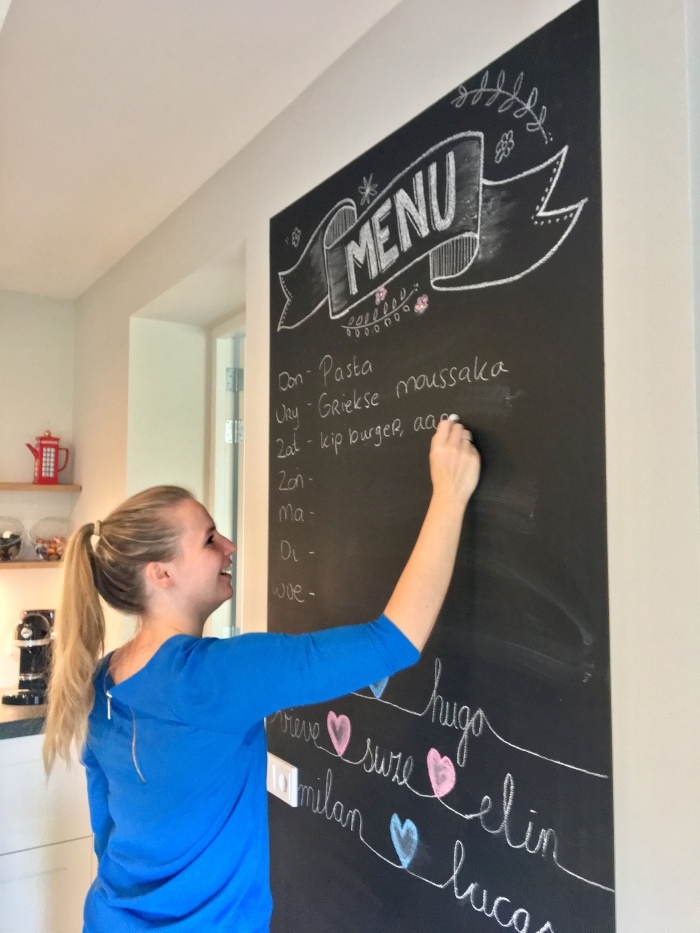 MENU
Don - Pasta
Vrij - Griekse moussaka
Zat - kip burger, aa
Zon -
Ma -
Di -
Woe -
hugo
suze elin
milan lucas